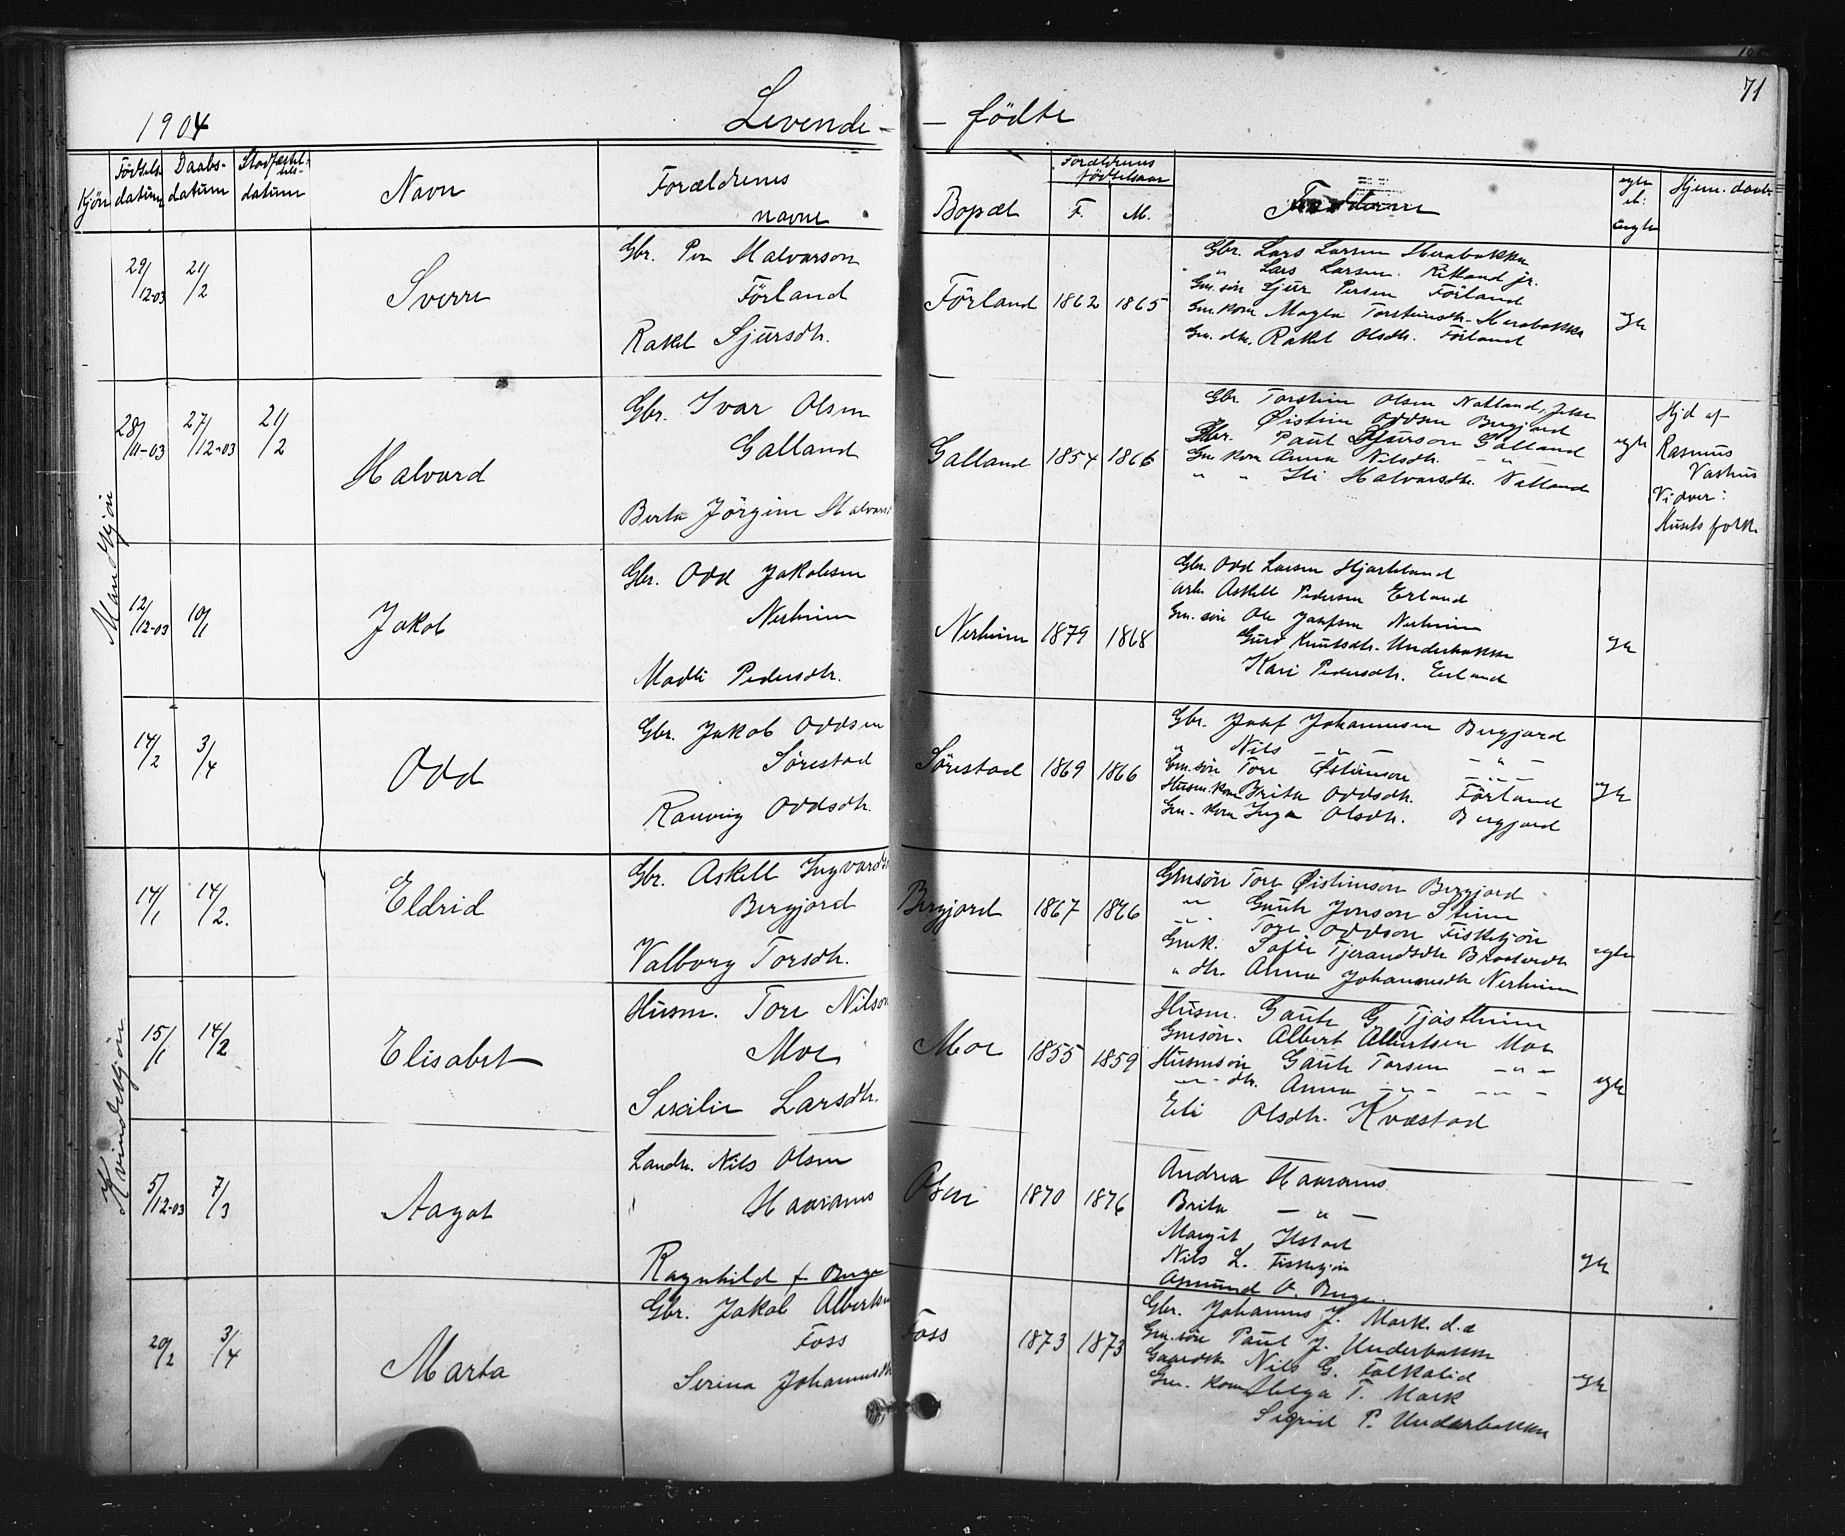 71
1904
Levende - - födte
Kjön
Födsels-
datum
Daabs-
datum
Stadfæstel-
ses-
datum
Navn
Forældrenes
navne
Bopæl
Forældrenes
födselsaar
F. M.
Fadderne
egte
el.
uegte
Hjem. daab
Mandkjön
29/12-03 21/2
Sverre
Gbr. Per Halvarson
Förland
Rakel Sjursdtr.
Förland 1862 1865
Gbr. Lars Larsen Herabakka
" Lars Larsen Rikland jr.
Gm. sön Sjur Persen Förland
Gm. kom Magla Torsteinsdtr. Herabakka
Gm. dtr. Rakel Olsdtr. Förland
egte
28/11-03 27/12-03 21/2
Halvard
Gbr. Ivar Olsen
Galland
Berta Jörgine Halvars
Galland 1854 1866
Gbr. Torstein Olsen Natland,
Öistein Oddsen Bergjord
Gbr. Paul Sjurson Galland
Gm. kom Anna Nilsdtr. - " -
" " Eli Halvarsdtr. Natland
egte
Hjd af
Rasmus
Vastus
Vidner:
Husets folk.
12/12-03 10/1
Jakob
Gbr. Odd Jakobsen
Nerheim
Madli Pedersdtr.
Nerheim 1879 1868
Gbr. Odd Larsen Hjorteland
arb. Askell Pedersen Erland
Gm. sön Ole Josefsen Nerheim
Guro Knutsdtr. Underbakka
Kari Pedersdtr. Erland
egte
14/2 3/4
Odd
Gbr. Jakob Oddsen
Sörestad
Ranveig Oddsdtr.
Sörestad 1869 1866
Gbr. Josef Johannesen Bergjord
" Nils - " - - " -
Gm. sön Tore Östeinson - " -
Husm. kom Brita Oddsdtr. Förland
Gm. kom Inga Olsdtr. Bergjord
egte
Kvindekjön
14/1 14/2.
Eldrid
Gbr. Askell Ingvards
Bergjord
Valborg Torsdtr.
Bergjord 1867 1866
Gmsön Tore Öisteinson Bergjord
- " - Gaute Jonson Steine
- " - Tore Oddson Fisketjön
Gmk. Sofie Tjerandsdtr.
" dtr. Anna Johannesdtr. Nerheim
egte
15/1 14/2
Elisabet
Husm. Tore Nilson
Moe
Sesilie Larsdtr.
Moe 1855 1859
Husm. Gaute G Tjöstheim
Gmsön. Albert Albertsen Moe
Husmsön Gaute Torsen - " -
- " - dtr. Anna - " - - " -
Eli Olsdtr. Kvæstad
egte
5/12-03 7/3
Aagot
Landh. Nils Olsen
Haarams
Ragnhild f. Buge
Osen 1870 1876
Andrea Haarams
Brita - " -
Margit Ilstad
Nils L. Fisketjön
Asmund O. Buge.
egte
20/2 3/4
Marta
Gbr. Jakob Albertsen
Foss
Serina Johannesdtr
Foss 1873 1873
Gbr. Johannes J. Mark. d.e
Gm. sön Paul J. Underbakka
Gaardbr. Nils G. Falkalid
Gm. kom Helga T. Mark
Sigrid P. Underbakka
egte